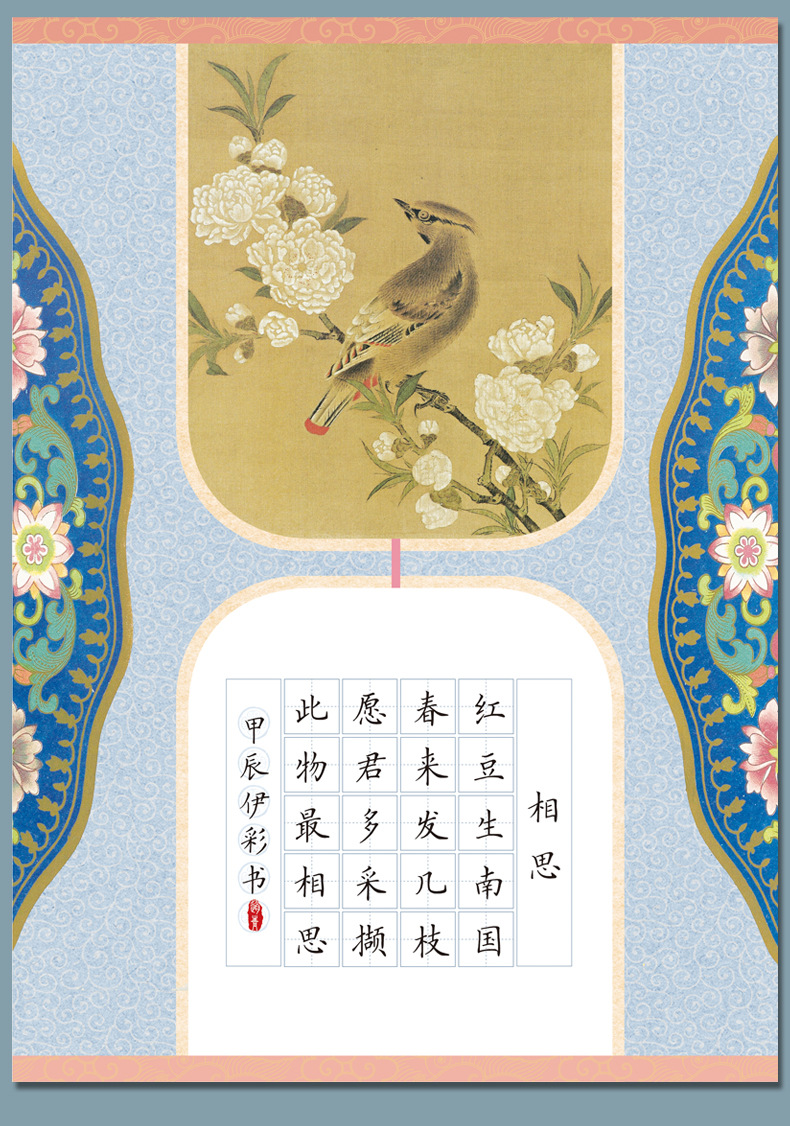 相思
红豆生南国
春来发几枝
愿君多采撷
此物最相思
甲辰伊彩书